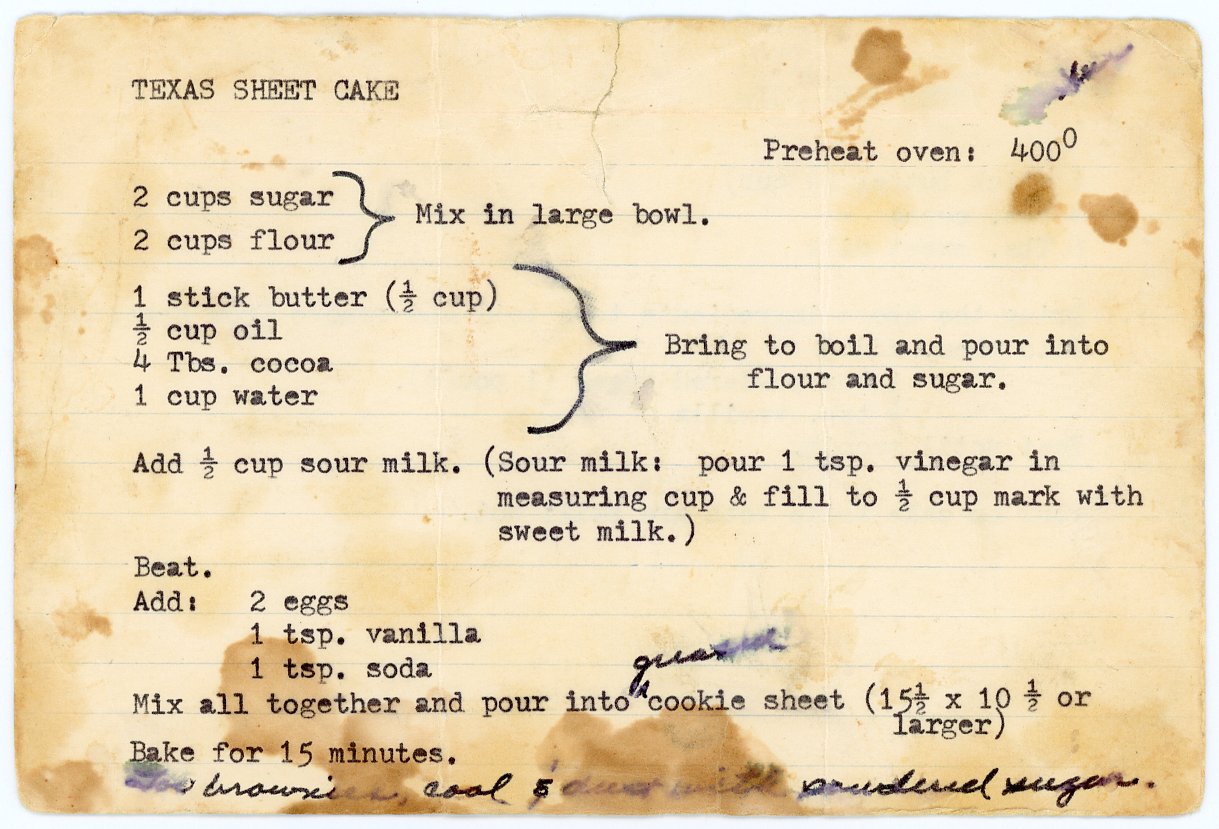 TEXAS SHEET CAKE
Preheat oven: 400⁰
2 cups sugar
2 cups flour
Mix in large bowl.
1 stick butter (½ cup)
½ cup oil
4 Tbs. cocoa
1 cup water
Bring to boil and pour into
flour and sugar.
Add ½ cup sour milk. (Sour milk: pour 1 tsp. vinegar in
measuring cup & fill to ½ cup mark with
sweet milk.)
Beat.
Add: 2 eggs
1 tsp. vanilla
1 tsp. soda
Mix all together and pour into cookie sheet (15½ x 10 ½ or
larger)
Bake for 15 minutes.
brownies, cool & dust with powdered sugar.